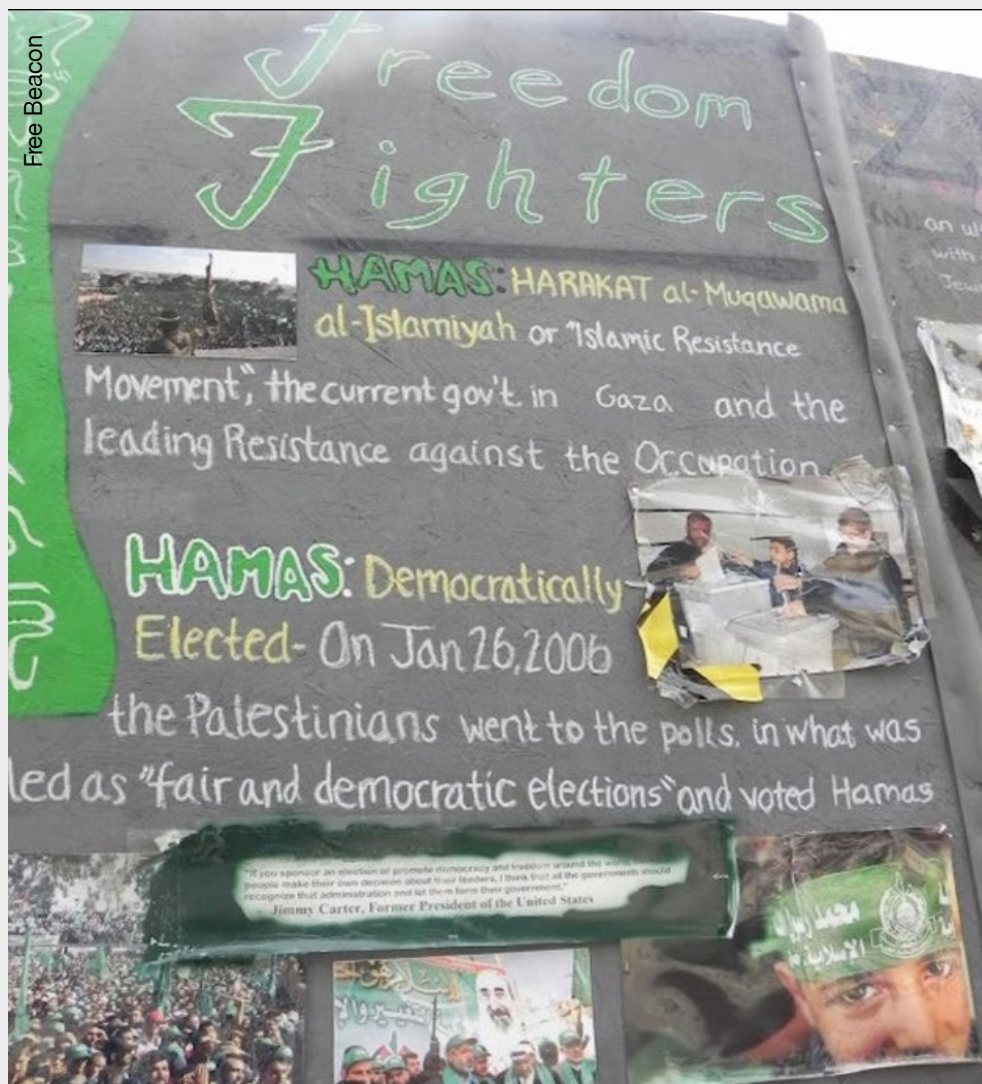 Free Beacon
Freedom
Fighters
HAMAS: HARAKAT al-Muqawama
al-Islamiyah or "Islamic Resistance
Movement", the current gov't in Gaza and the
leading Resistance against the Occupation
HAMAS: Democratically
Elected- On Jan 26, 2006
the Palestinians went to the polls, in what was
led as "fair and democratic elections" and voted Hamas
"If you sponsor an election or promote democracy and freedom around the world,
people make their own decision about their leaders, I think that all the governments should
recognize that administration and let them form their government."
- Jimmy Carter, Former President of the United States
محمد رسول
الاسلامية
an
with